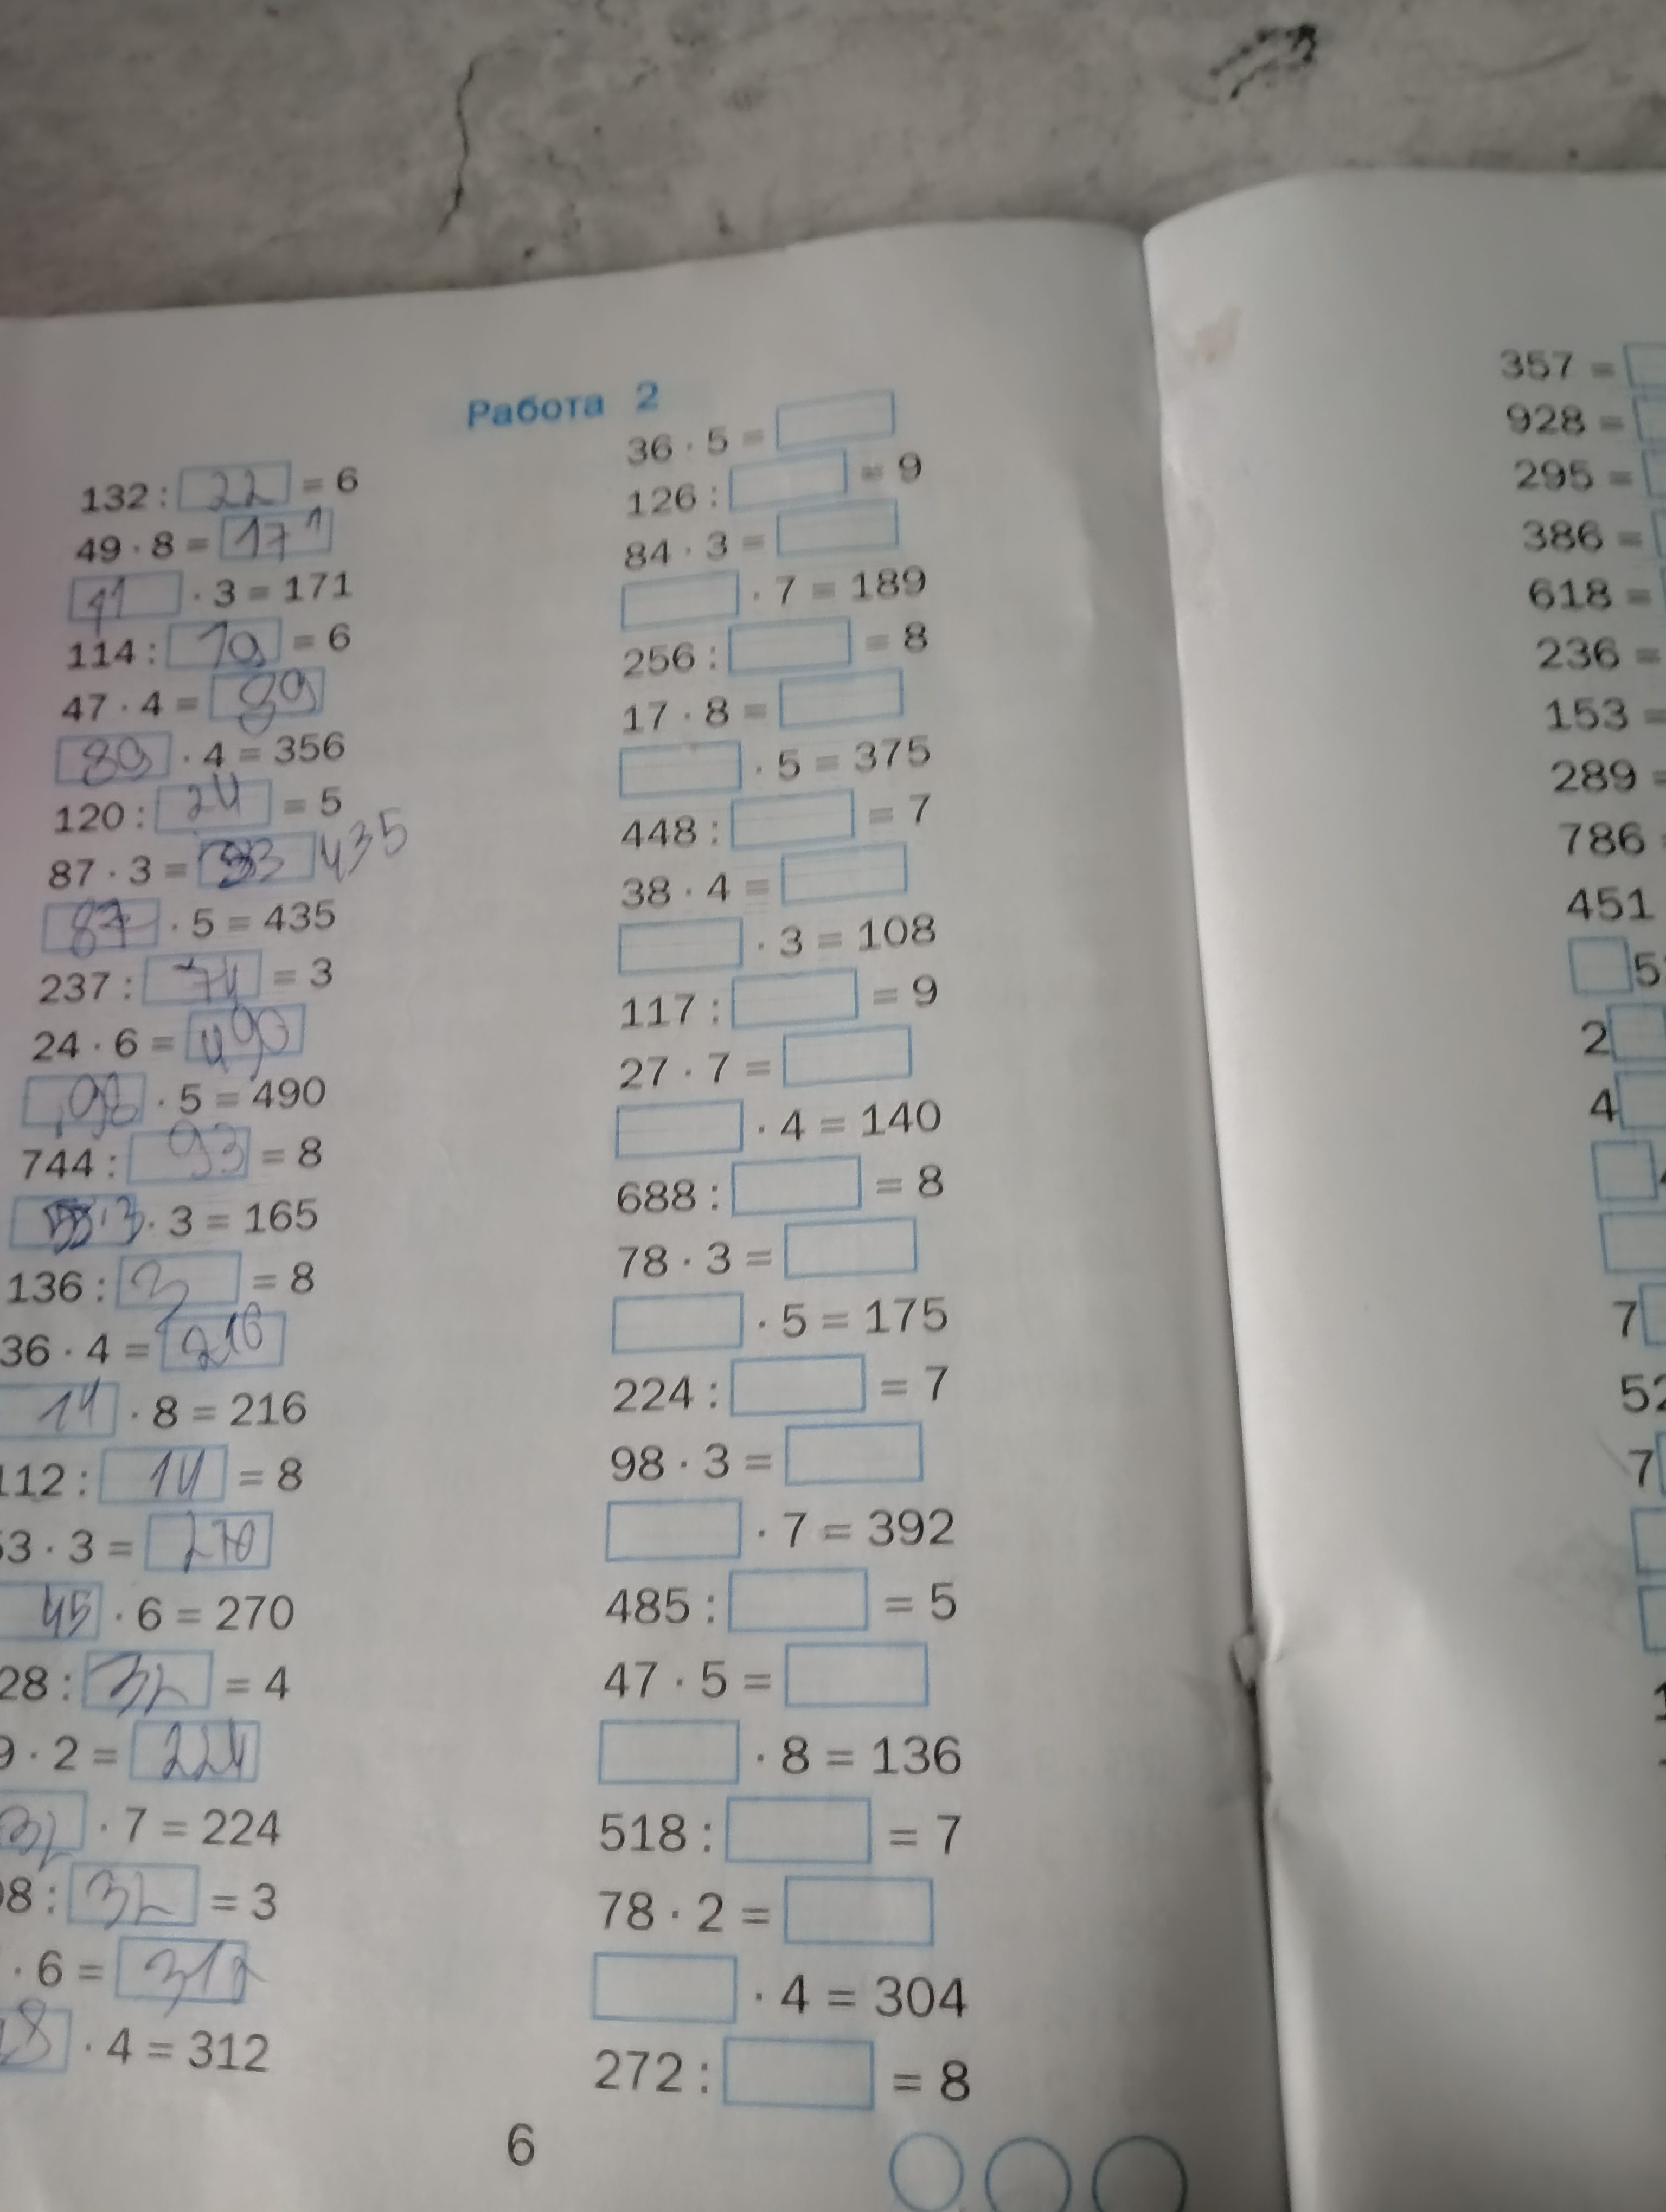 Работа 2
132 : 22 = 6
49 · 8 = 171
· 3 = 171
114 : 19 = 6
47 · 4 = 89
89 · 4 = 356
120 : 24 = 5
87 · 3 = 435
87 · 5 = 435
237 : = 3
24 · 6 = 490
98 · 5 = 490
744 : 93 = 8
· 3 = 165
136 : = 8
36 · 4 = 216
14 · 8 = 216
112 : 14 = 8
3 · 3 = 270
45 · 6 = 270
28 : 32 = 4
9 · 2 = 224
32 · 7 = 224
8 : 32 = 3
· 6 = 312
8 · 4 = 312
36 · 5 =
126 : = 9
84 · 3 =
· 7 = 189
256 : = 8
17 · 8 =
· 5 = 375
448 : = 7
38 · 4 =
· 3 = 108
117 : = 9
27 · 7 =
· 4 = 140
688 : = 8
78 · 3 =
· 5 = 175
224 : = 7
98 · 3 =
· 7 = 392
485 : = 5
47 · 5 =
· 8 = 136
518 : = 7
78 · 2 =
· 4 = 304
272 : = 8
6
357 =
928 =
295 =
386 =
618 =
236 =
153 =
289 =
786
451
5
2
4
7
52
7